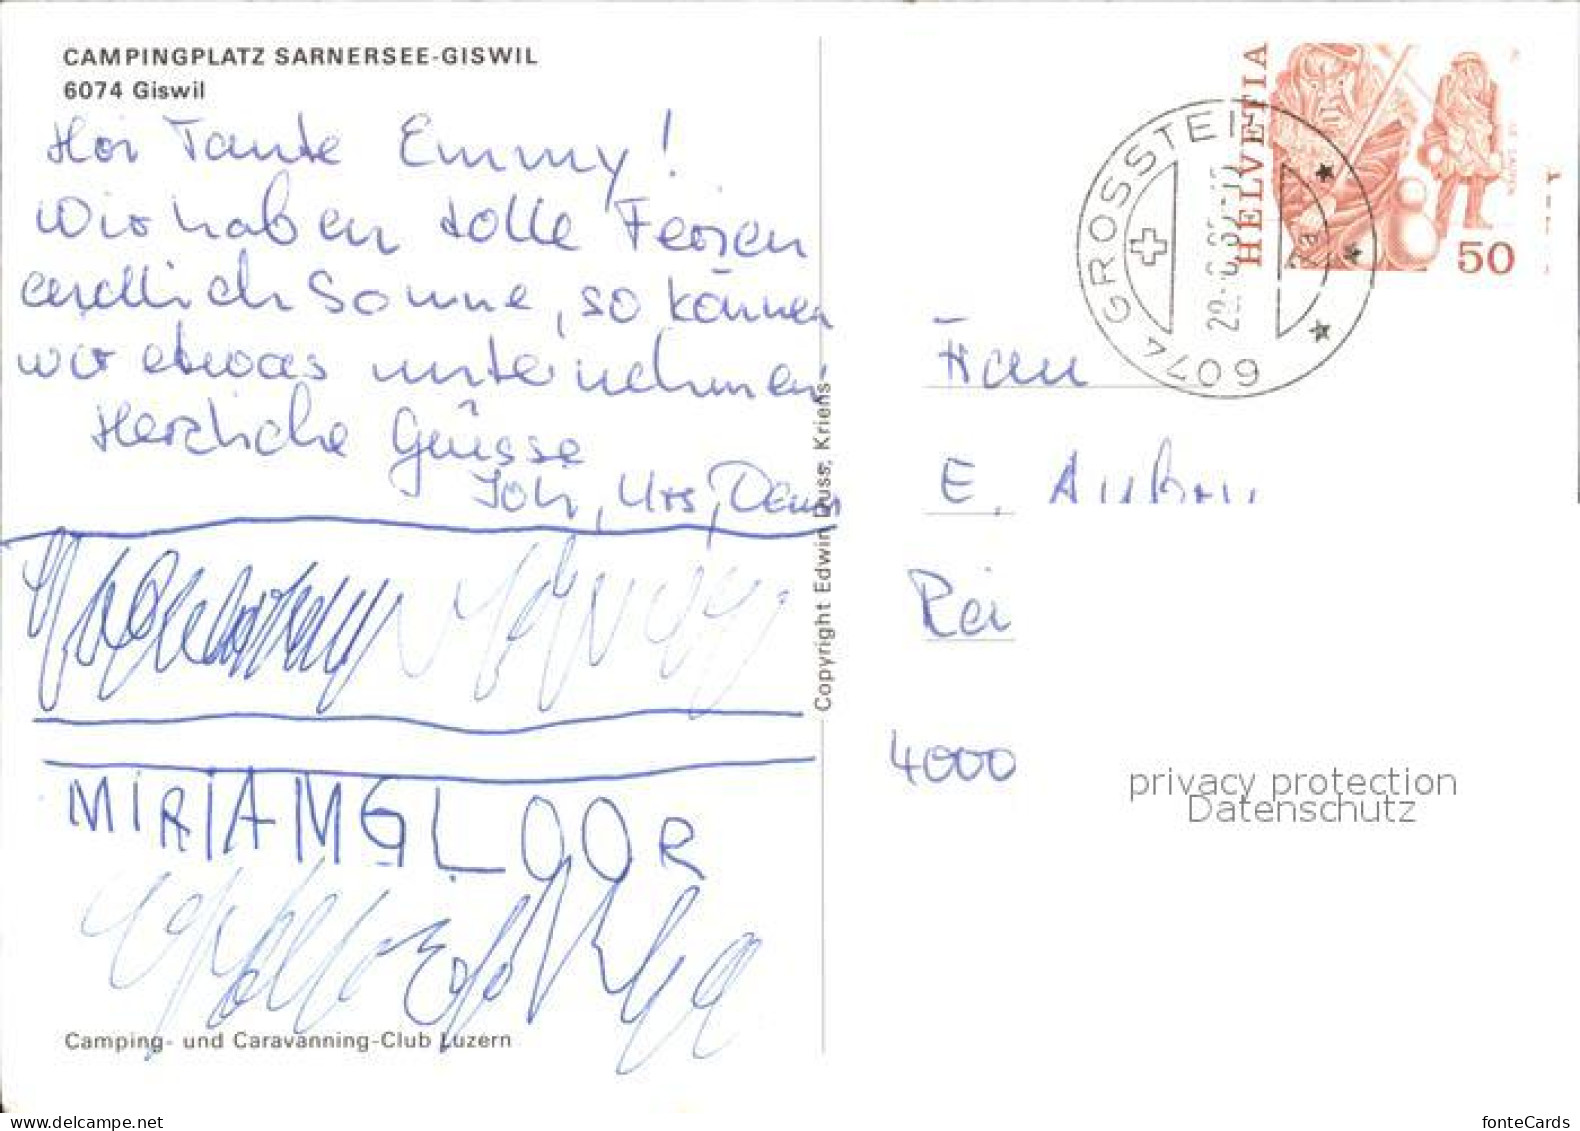 CAMPINGPLATZ SARNERSEE-GISWIL
6074 Giswil
Hoi Tante Emmy!
Wir haben tolle Ferien
endlich Sonne, so können
wir etwas unternehmen
Herzliche Grüsse
Urs,
MIRIAMGLOOR
Camping- und Caravanning-Club Luzern
Copyright Edwin Duss, Kriens
HELVETIA
50
6074 GROSSTEIL
Frau
E.
4000
privacy protection
Datenschutz
fonteCards